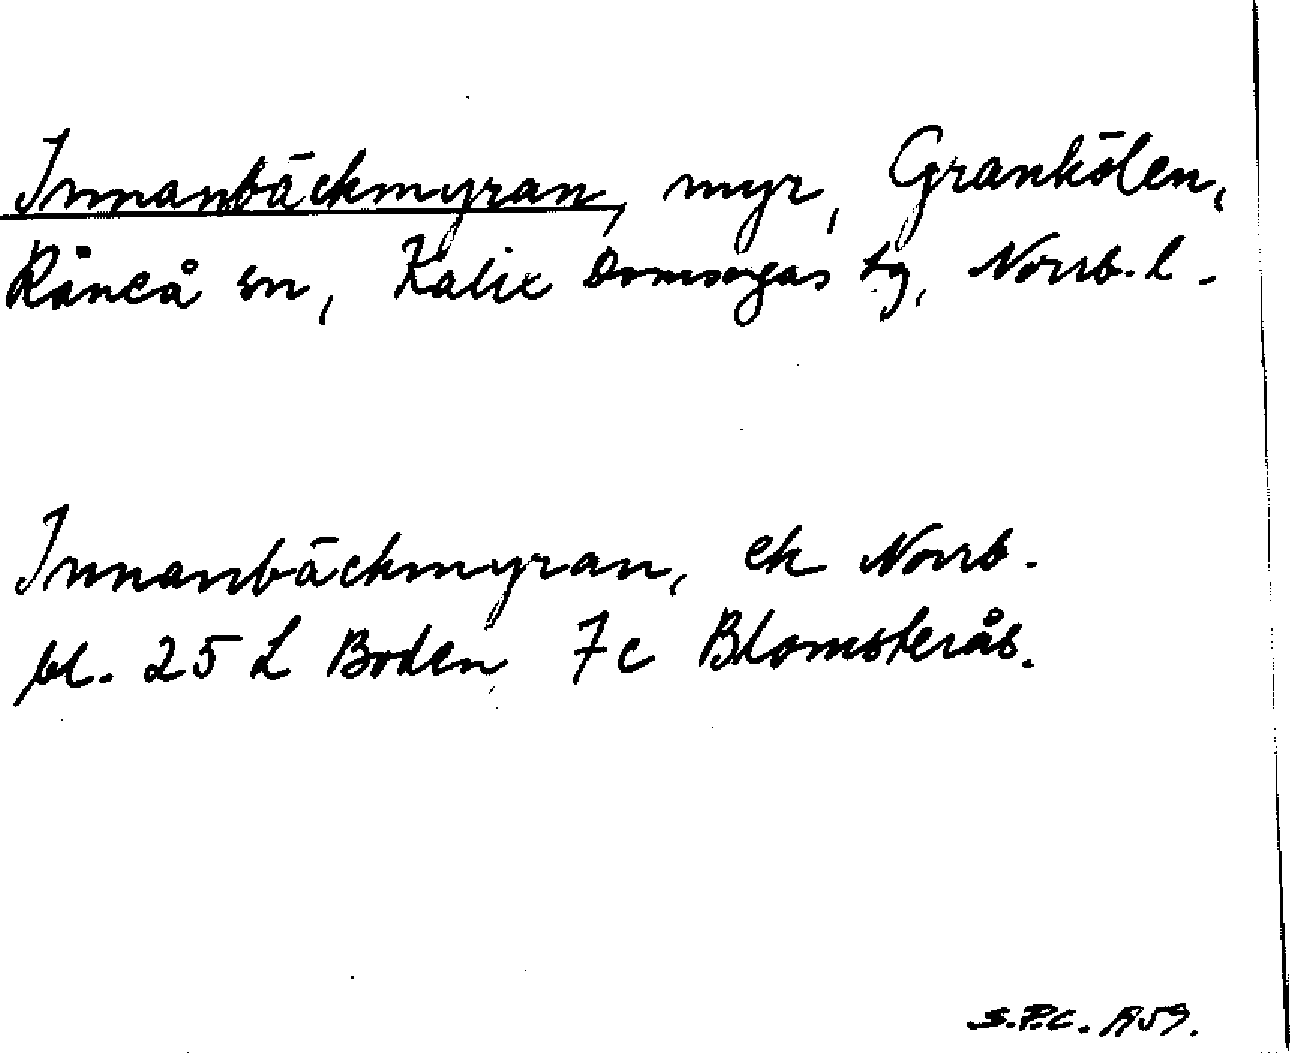 Innanbäckmyran, myr, Grankölen,
Råneå sn, Kalix Domsagas tg, Norrb. l.
Innanbäckmyran, ek Norrb.
bl. 25 L Boden 7c Blomsterås.
S.P.C. 1959.